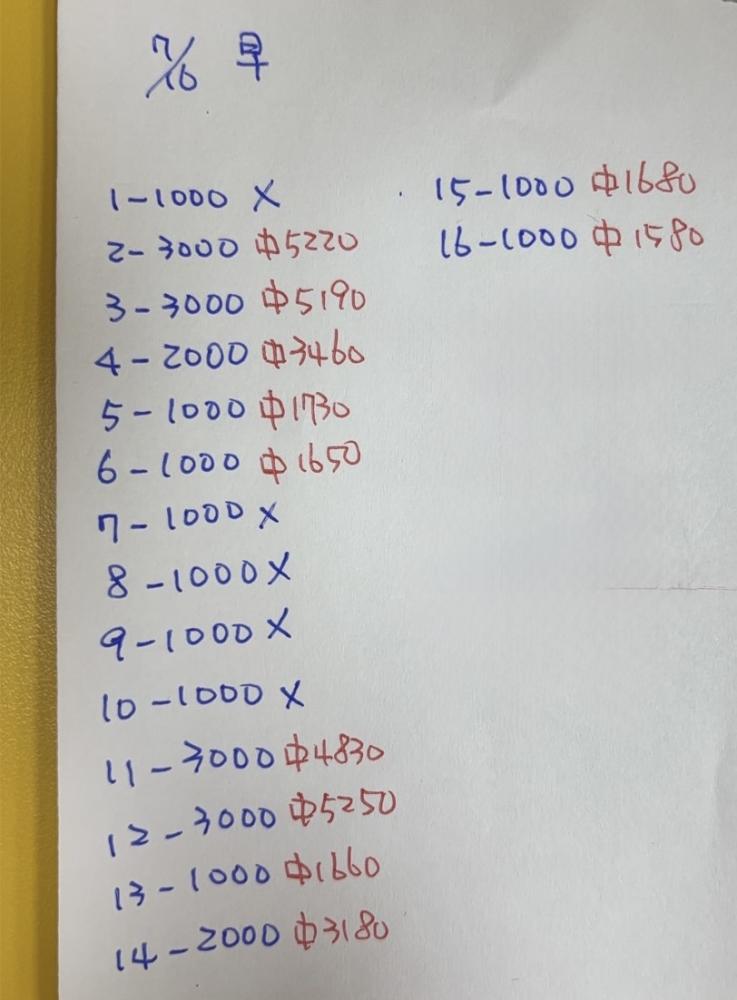 7/16 早
1-1000 X
2-3000 中5220
3-3000 中5190
4-2000 中3460
5-1000 中1730
6-1000 中1650
7-1000 X
8-1000 X
9-1000 X
10-1000 X
11-3000 中4830
12-3000 中5250
13-1000 中1660
14-2000 中3180
15-1000 中1680
16-1000 中1580